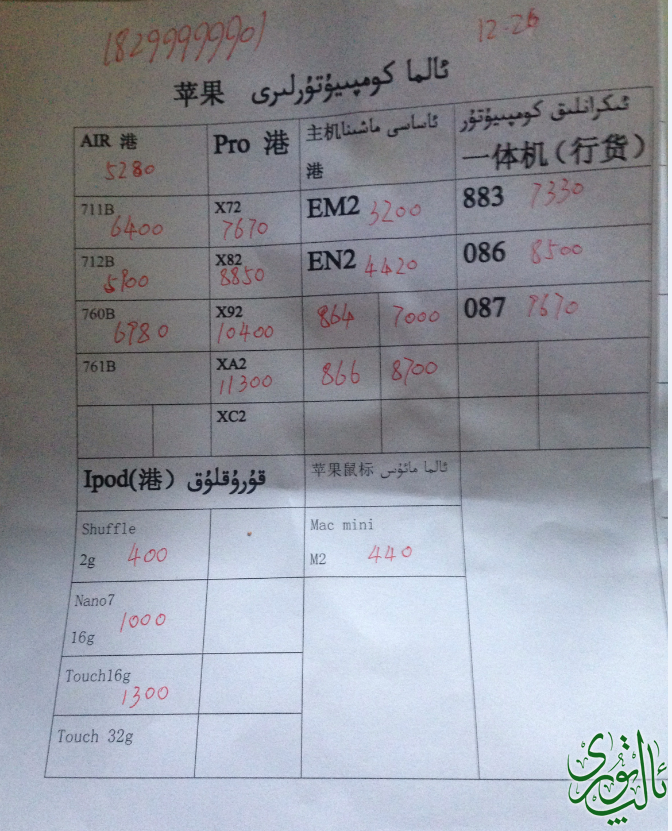 18299999901
12-26
苹果 ئالما كومپيۇتۇرلىرى
AIR 港 Pro 港 主机 ئاساسى ماشىنا ئىكرانلىق كومپيۇتۇر
5280 港 一体机（行货）
711B X72 EM2 3200 883 7330
6400 7670
712B X82 EN2 4420 086 8500
5900 8850
760B X92 864 7000 087 9670
6980 10400
761B XA2 866 8700
11300
XC2
Ipod(港) قۇرۇقلۇق 苹果鼠标 ئالما مائۇس
Shuffle Mac mini
2g 400 M2 440
Nano7
16g 1000
Touch16g
1300
Touch 32g